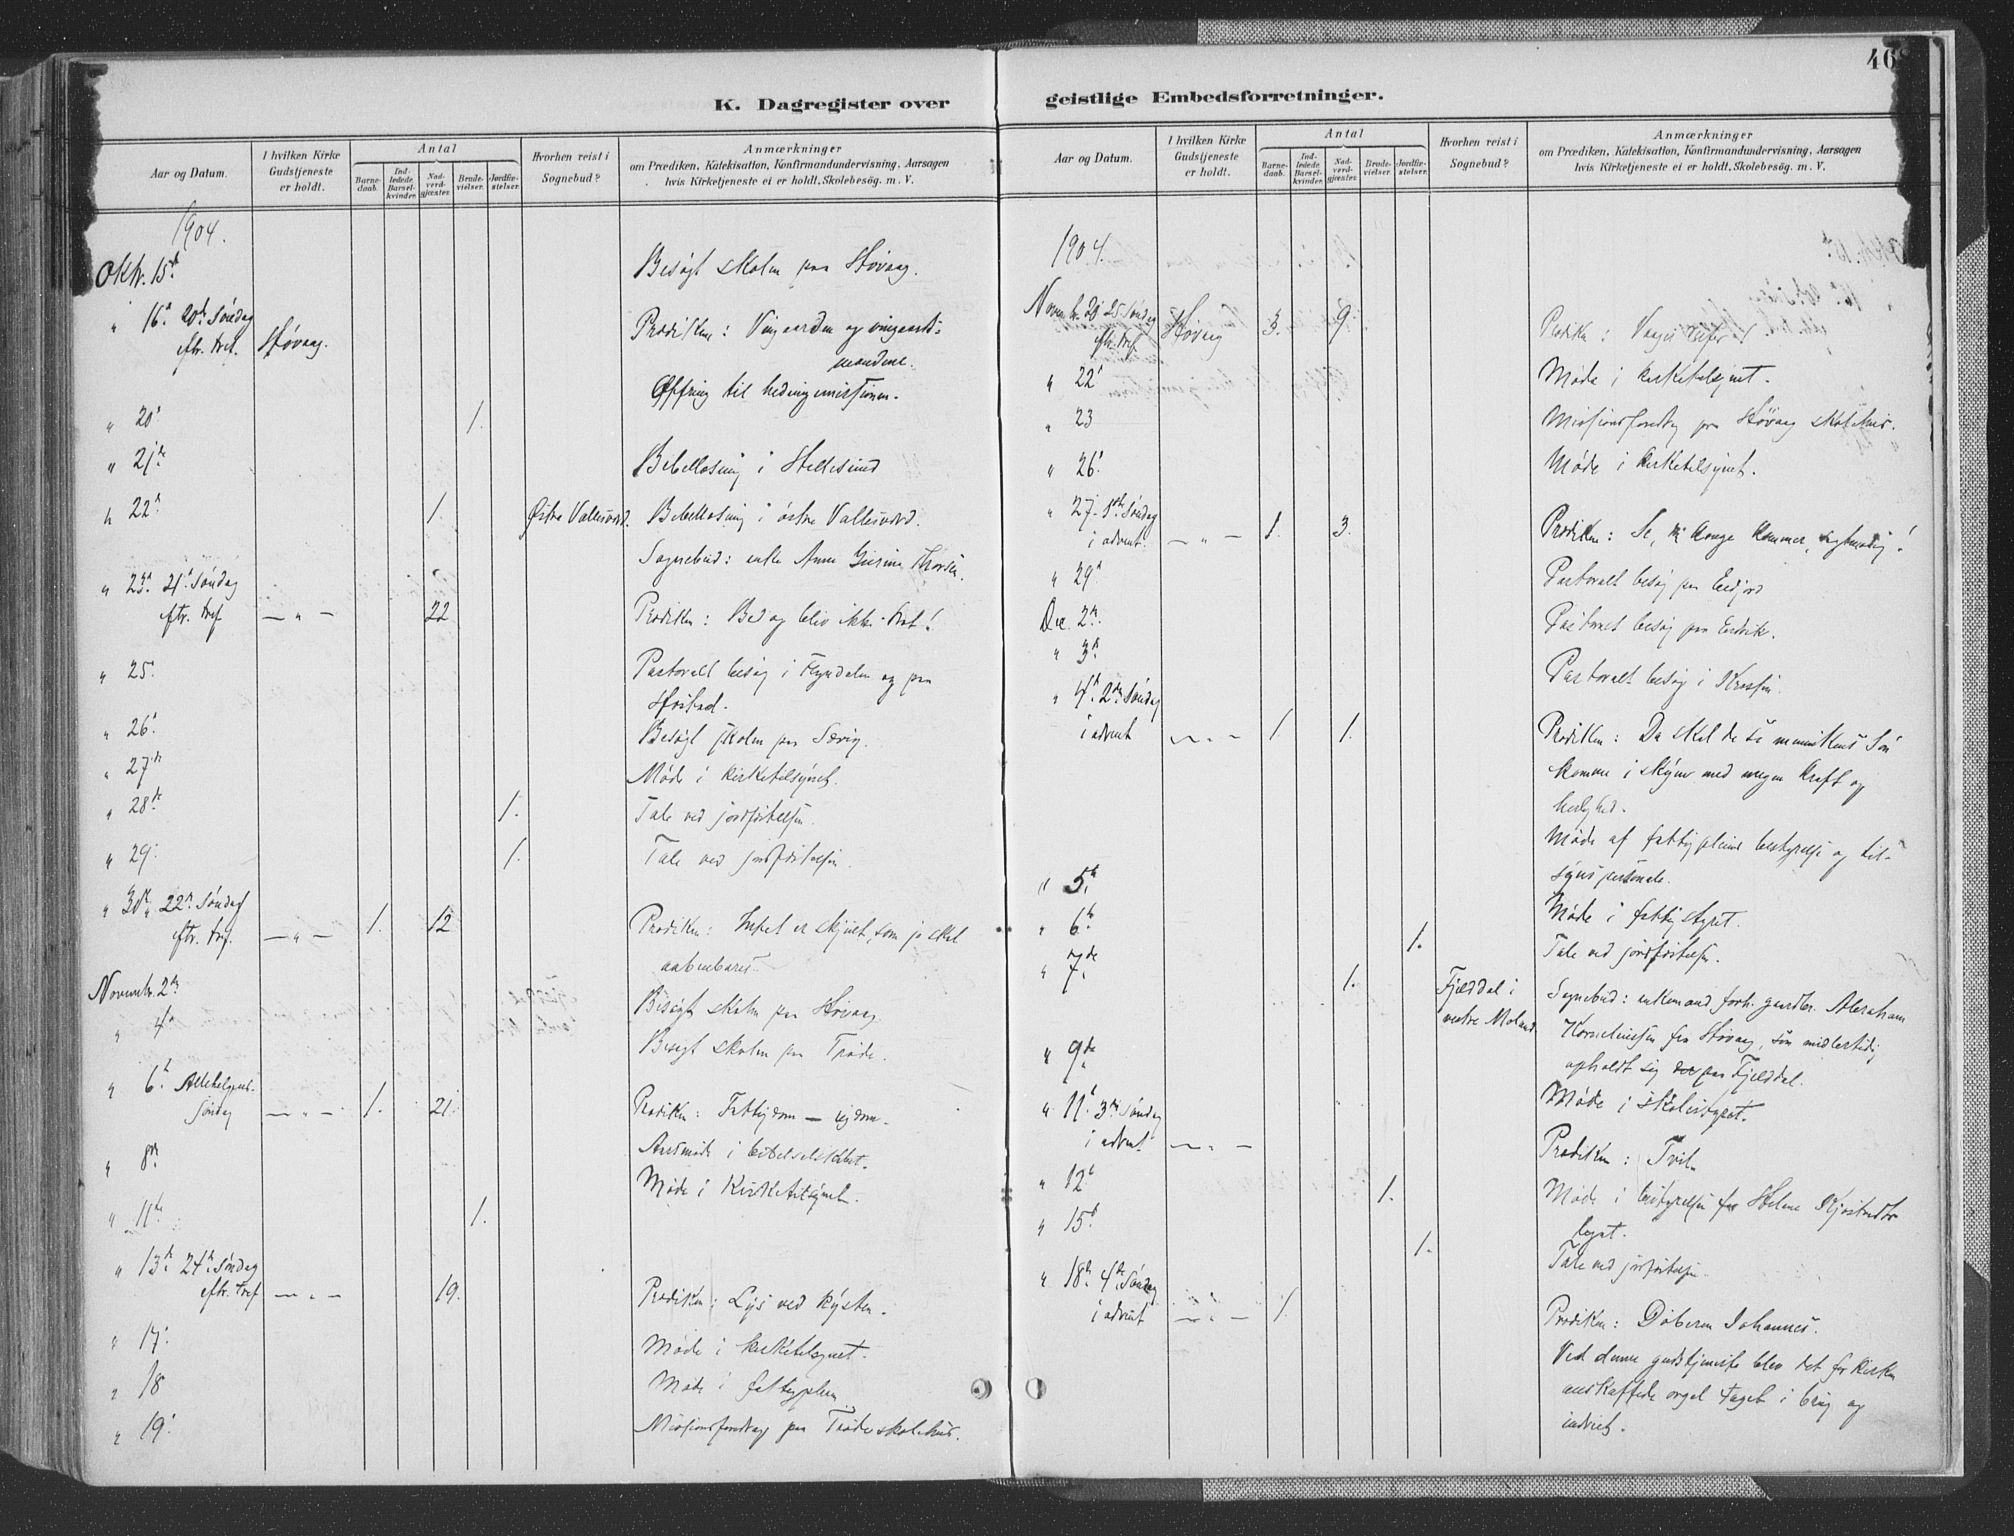 K. Dagregister over
Aar og Datum.
I hvilken Kirke Gudstjeneste er holdt.
Antal
Barnedaab.
Indledede Barselkvinder.
Nadverdgjæster.
Brudevielser.
Jordfæstelser.
Hvorhen reist i Sognebud?
Anmærkninger
om Prædiken, Katekisation, Konfirmandundervisning, Aarsagen
hvis Kirketjeneste ei er holdt, Skolebesøg. m. V.
1904.
Oktr. 15de Besøgt skolen paa Høvaag.
" 16de 20de Søndag Prædiken: Vingaarden og vingaards-
eftr. tref. Høvaag. mændene.
Offring til hedningemissionen.
" 20de 1.
" 21de Bibellæsning i Hellesund
" 22de 1. Østre Vallesværd. Bibellæsning i østre Vallesværd.
Sognebud: enke Anne Thorsen.
" 23de 21de Søndag
eftr. tref — " — 22 Prædiken: Bed og bliv ikke træt!
" 25. Pastoralt besøg i og paa
" 26de Besøgt skolen paa
" 27de Møde i kirketilsynet.
" 28de 1. Tale ved jordfæstelsen.
" 29. 1. Tale ved jordfæstelsen.
" 30te 22de Søndag
eftr. tref. — " — 1. 12 Prædiken: Intet er skjult, som jo skal
aabenbares.
Novembr. 2den Besøgt skolen paa Høvaag.
" 4de Besøgt skolen paa Trøde.
" 6te Allehelgens-
Søndag — " — 1. 21. Prædiken: Fattigdom — rigdom.
" 8de Aarsmøde i bibelselskabet.
Møde i Kirketilsynet.
" 11te 1.
" 13de 24de Søndag
eftr. tref — " — 19. Prædiken: Lys ved kysten.
" 17. Møde i kirketilsynet.
" 18 Møde i fattigplein
" 19. Missionsforedrag paa Trøde skolehus.
46
geistlige Embedsforretninger.
Aar og Datum.
I hvilken Kirke Gudstjeneste er holdt.
Antal
Barnedaab.
Indledede Barselkvinder.
Nadverdgjæster.
Brudevielser.
Jordfæstelser.
Hvorhen reist i Sognebud?
Anmærkninger
om Prædiken, Katekisation, Konfirmandundervisning, Aarsagen
hvis Kirketjeneste ei er holdt, Skolebesøg. m. V.
1904.
Novembr. 20 25 Søndag
eftr. tref Høvaag 3. 9. Prædiken:
" 22de Møde i kirketilsynet.
" 23 Missionsforedrag paa Høvaag skolehus.
" 26. Møde i kirketilsynet.
" 27. 1ste Søndag
i advent. — " — 1. 3. Prædiken: Se, din konge kommer, !
" 29de Pastoralt besøg paa
Dec. 2den Pastoralt besøg paa
" 3die Pastoralt besøg i
" 4de 2den Søndag
i advent — " — 1 1. Prædiken: Da skal de se menneskens Søn
komme i skyen med megen kraft og
herlighed.
Møde af fattigpleiens bestyrelse og til-
synspersonale.
" 5te Møde i fattigstyret.
" 6te 1. Tale ved jordfæstelsen.
" 7de 1. Fjælddal i vestre Moland. Sognebud: enkemand forh. gaardbr. Abraham
Kornelius­sen fra Høvaag, som midlertidig
opholdt sig paa Fjælddal.
" 9de Møde i skolestyret.
" 11te 3die Søndag
i advent — " — Prædiken: Tvil.
" 12te 1. Møde i bestyrelsen for Helene
legat.
" 15de 1. Tale ved jordfæstelsen.
" 18de 4de Søndag
i advent — " — 1. Prædiken: Døberen Johannes.
Ved denne gudstjeneste blev det for kirken
anskaffede orgel taget i brug og
indviet.